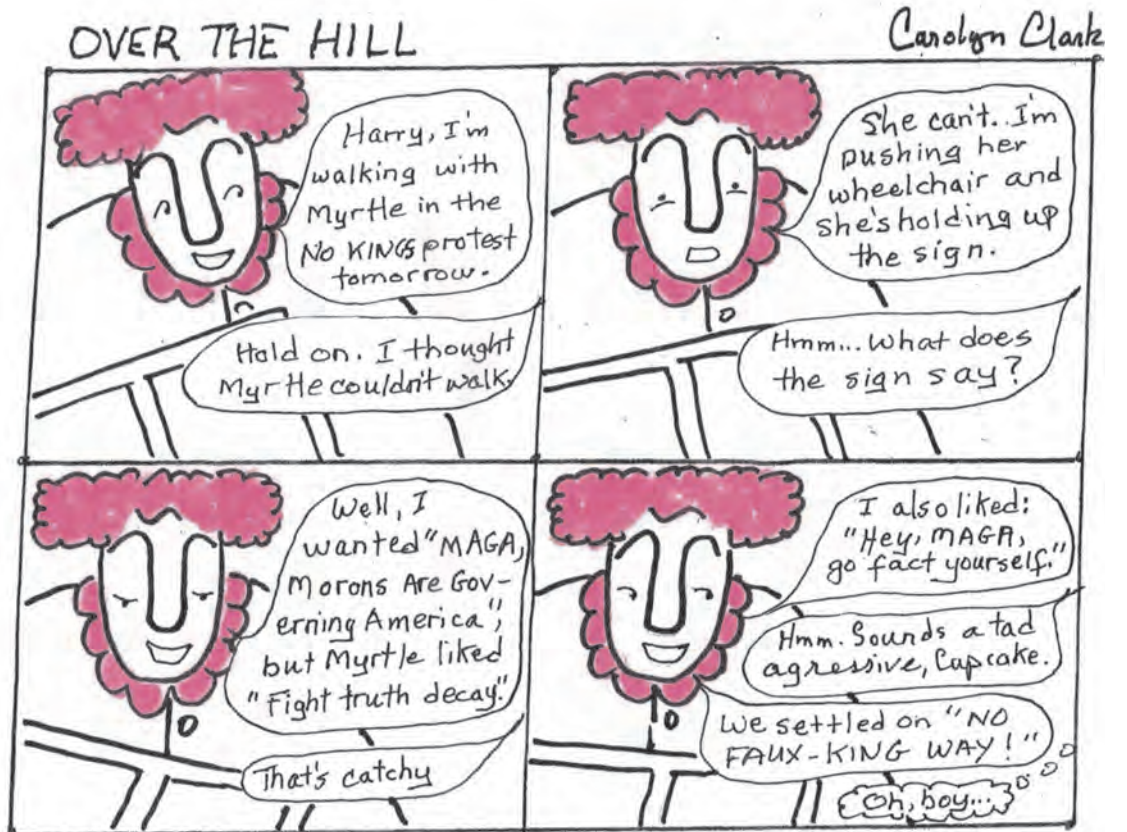 OVER THE HILL
Carolyn Clark
Harry, I'm
walking with
Myrtle in the
NO KINGS protest
tomorrow.
Hold on. I thought
Myrtle couldn't walk.
She can't.. I'm
pushing her
wheelchair and
she's holding up
the sign.
Hmm... What does
the sign say?
Well, I
wanted "MAGA,
Morons Are Gov-
erning America",
but Myrtle liked
"Fight truth decay."
That's catchy
I also liked:
"Hey, MAGA,
go fact yourself."
Hmm. Sounds a tad
agressive, Cupcake.
We settled on "NO
FAUX-KING WAY!"
Oh, boy...